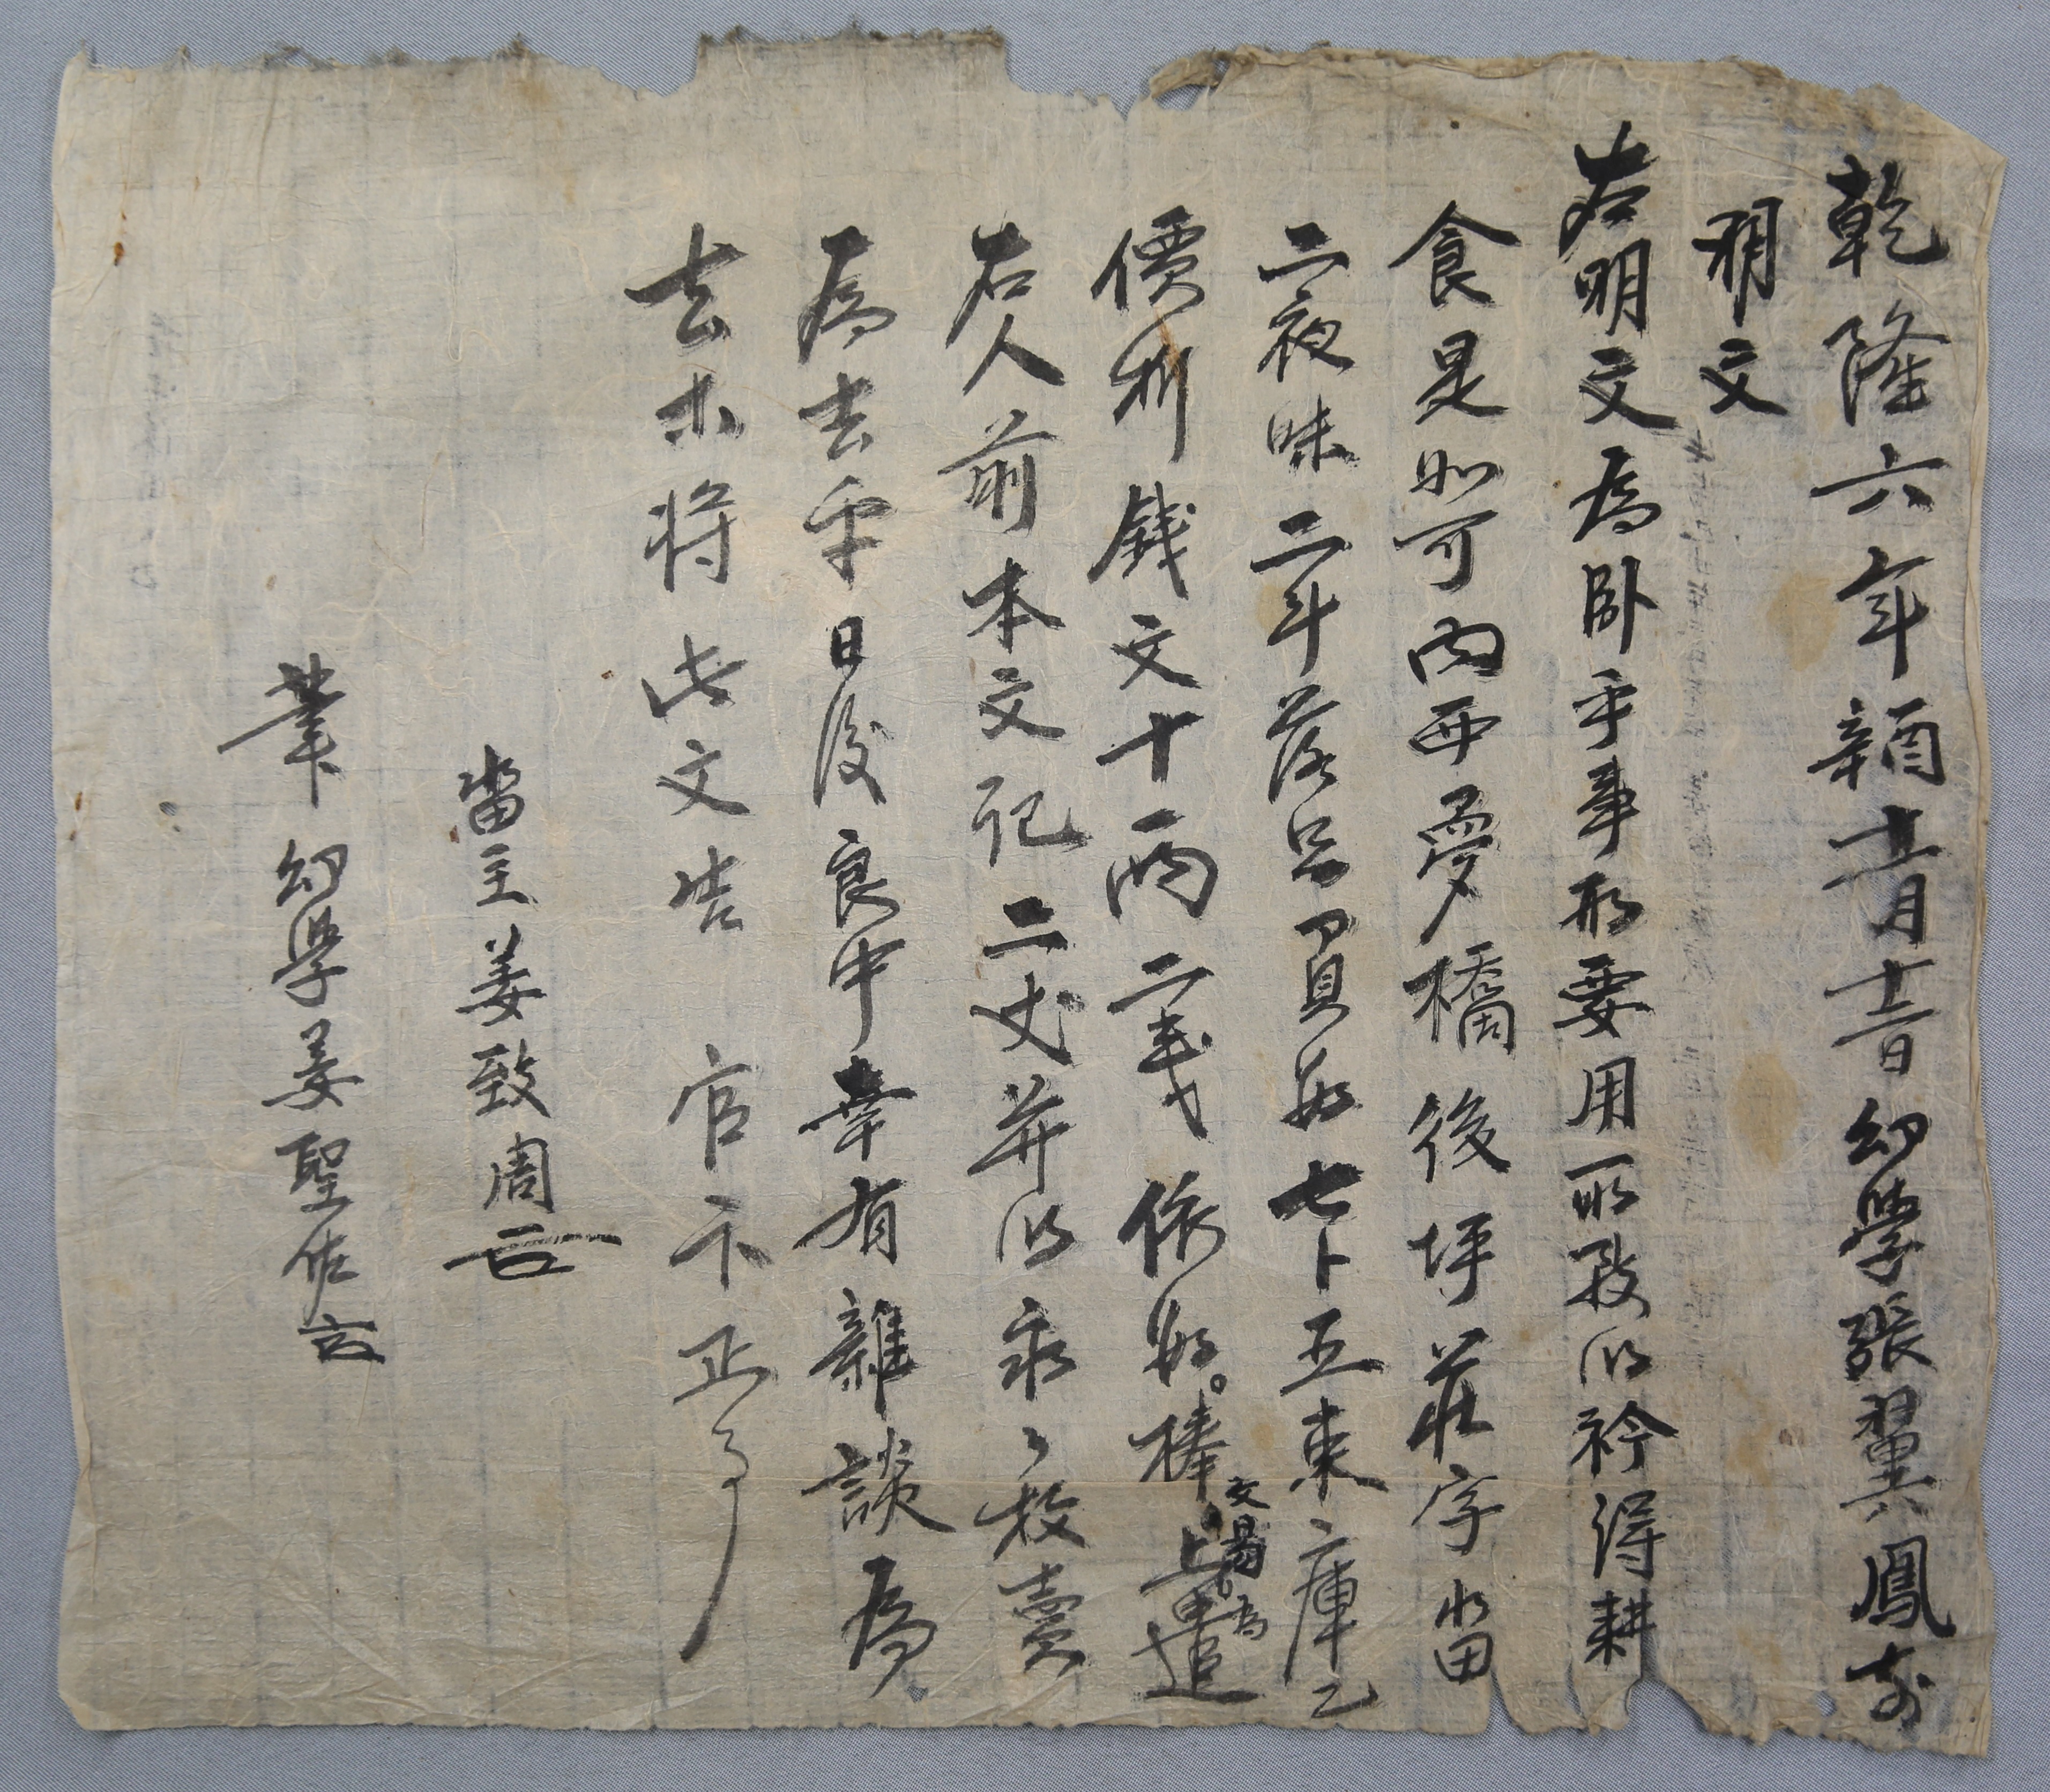 乾隆六年辛酉十一月十二日幼學張翼鳳前
明文
右明文爲臥乎事段要用所致以衿得耕
食是如可內面夢橋後坪莊字畓
二夜味二斗落只負數七卜五束庫乙
價折錢文十兩二戔依數捧上遣
交易爲
右人前本文記二丈并以永〃放賣
爲去乎日後良中幸有雜談爲
去未將此文告 官卞正事
畓主姜致周
筆 幼學姜聖佐